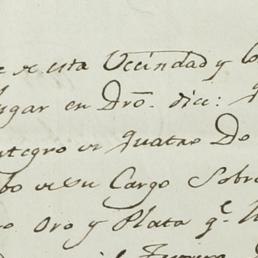 de esta Vecindad y
lugar en Dro. dice:
integro de quatro Do
bo de su Cargo Sobre
Oro y Plata q.e